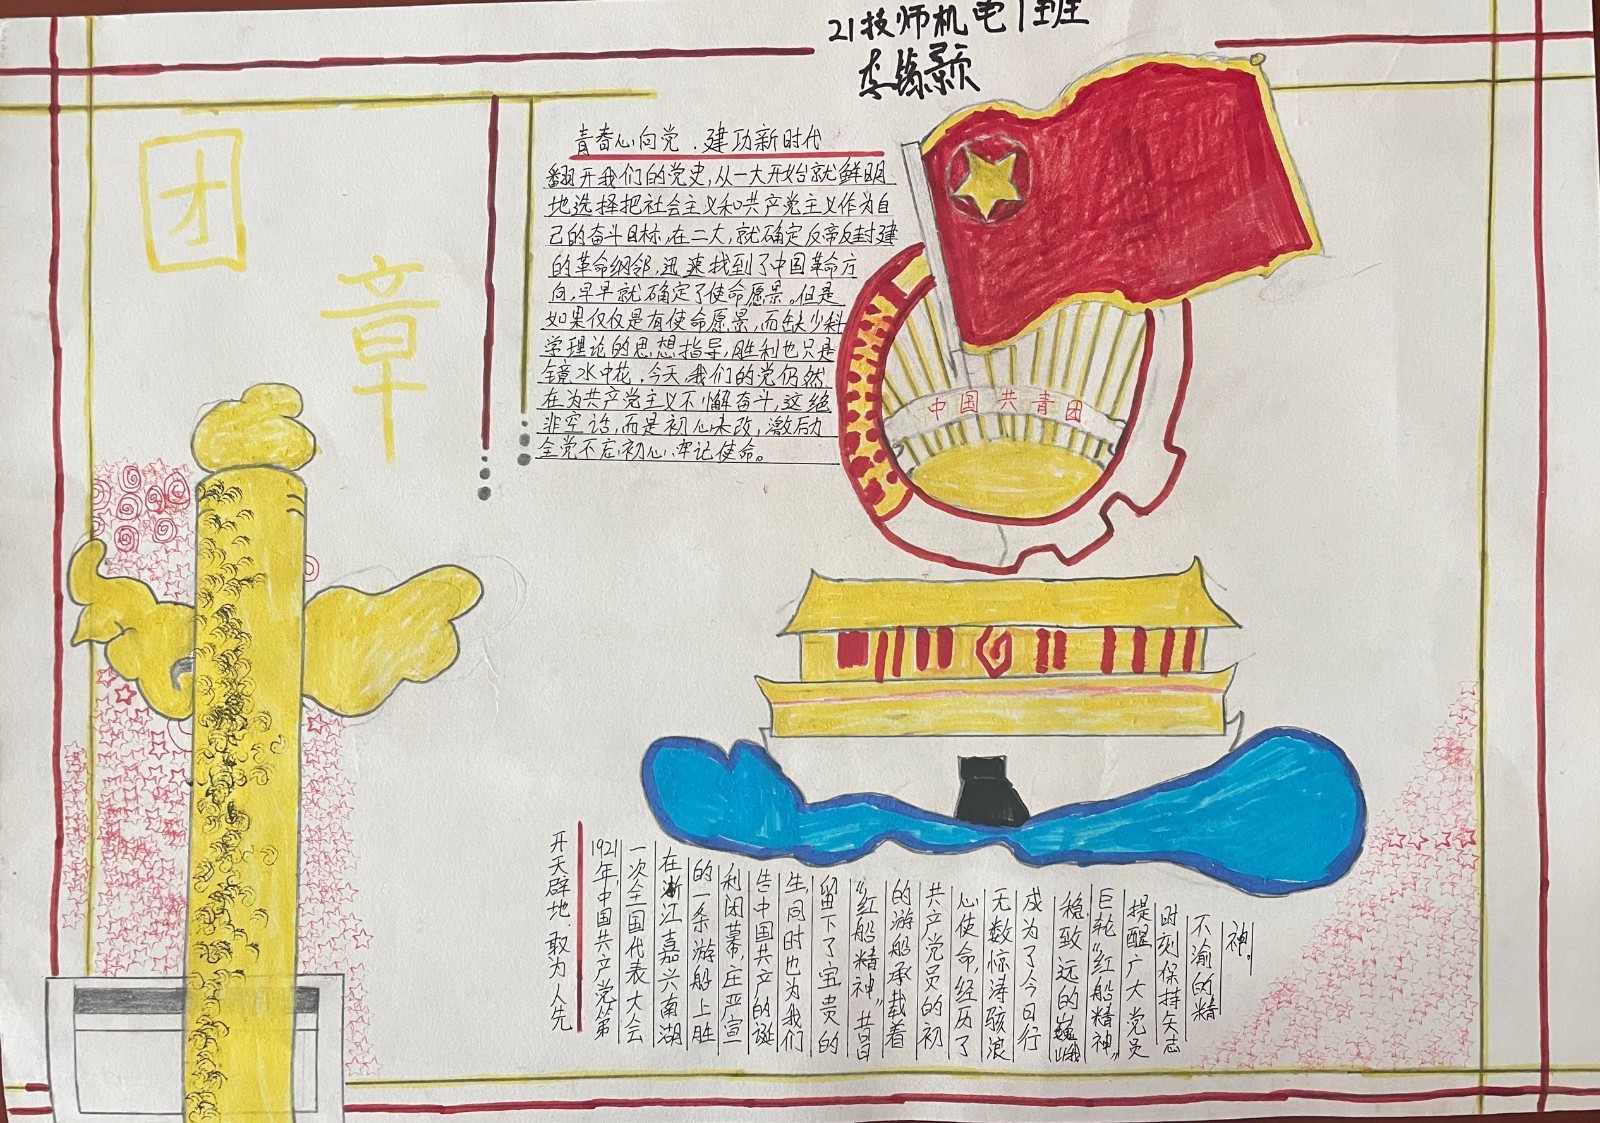 21技师机电1班
团
章
青春心向党.建功新时代
翻开我们的党史,从一大开始就鲜明
地选择把社会主义和共产党主义作为自
己的奋斗目标,在二大,就确定反帝反封建
的革命纲邻,迅速找到了中国革命方
向,早早就确定了使命愿景。但是
如果仅仅是有使命愿景,而缺少科
学理论的思想指导,胜利也只是
镜水中花,今天,我们的党仍然
在为共产党主义不懈奋斗,这绝
非空话,而是初心未改,激励
全党不忘初心,牢记使命。
中国共青团
开天辟地.敢为人先
1921年,中国共产党第
一次全国代表大会
在浙江嘉兴南湖
的一条游船上胜
利闭幕,庄严宣
告中国共产的诞
生,同时也为我们
留下了宝贵的
“红船精神”昔日
的游船承载着
共产党员的初
心使命,经历了
无数惊涛骇浪
成为了今日行
稳致远的巍峨
巨轮“红船精神”
提醒广大党员
时刻保持矢志
不渝的精
神。